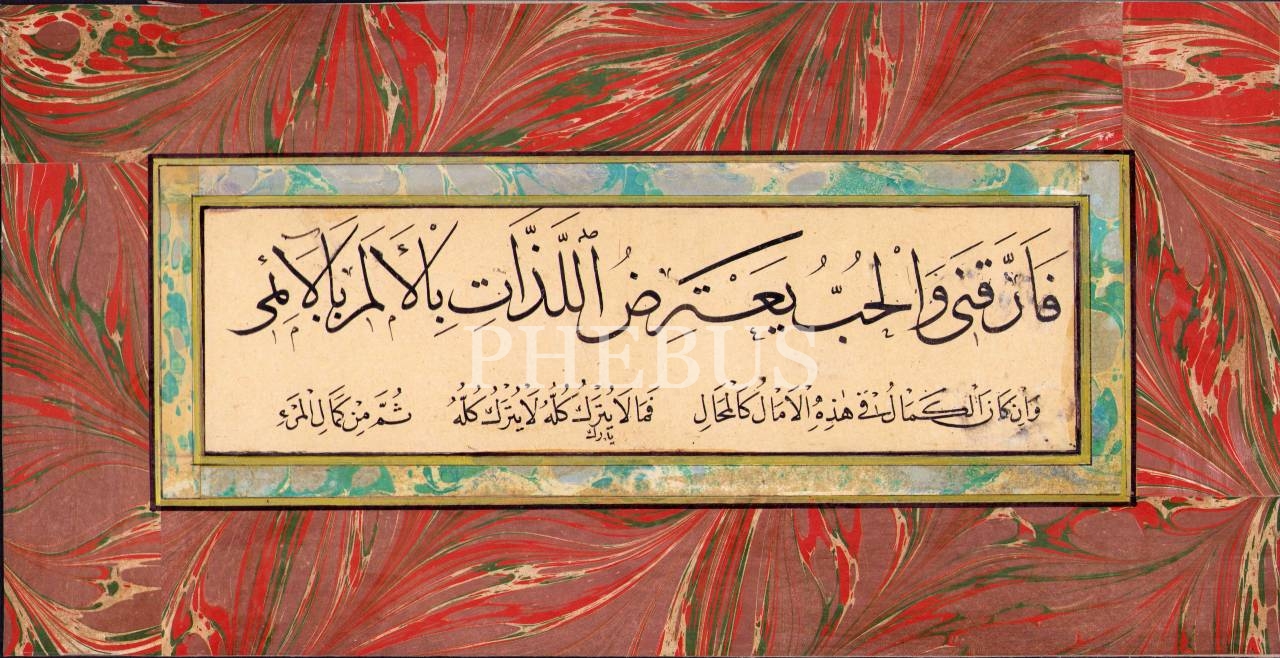 فَأَرَّقَنِي وَالْحُبُّ يَعْتَرِضُ اللَّذَّاتِ بِالْأَلَمِ يَا لَائِمِي
PHEBUS
وَإِنْ كَانَ الْكَمَالُ فِي هٰذِهِ الْآمَالُ كَالْمَحَالِ فَمَا لَا يُتْرَكُ كُلُّهُ لَا يُتْرَكُ كُلُّهُ ثُمَّ مِنْ كَمَالِ الْمَرْءِ
يدرك